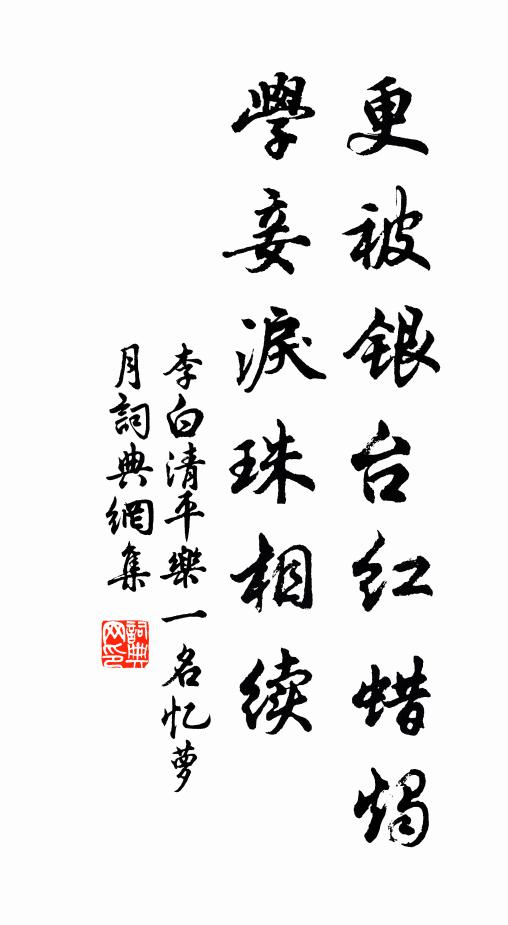 更被银台红蜡烛
學妾淚珠相续
李白清平樂一名忆萝
月詞典網集
詞典网印